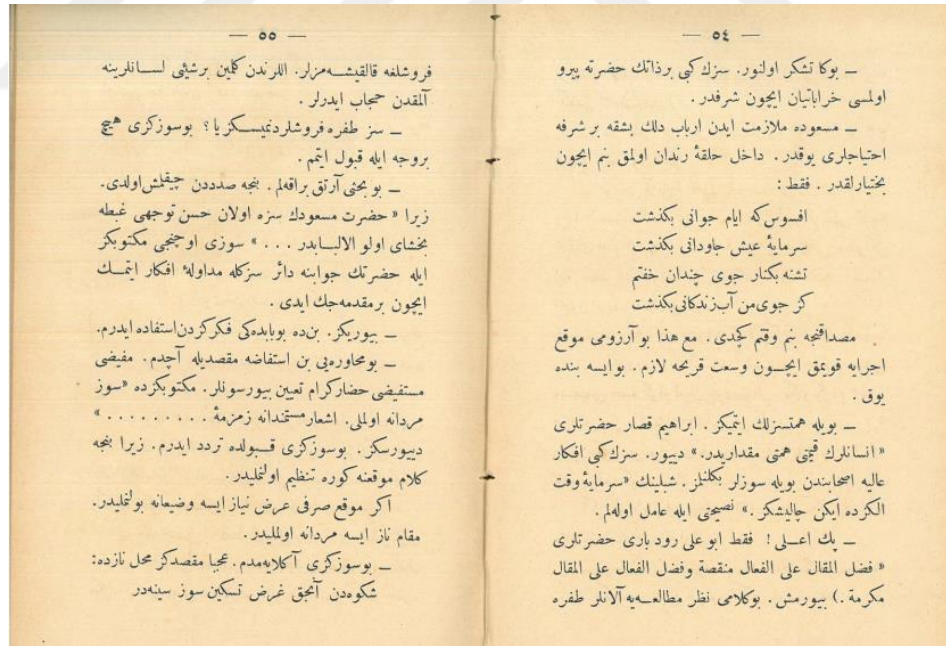 — ٥٤ —
ـ بوكا تشكر اولنور. سزك كبى برذاتك حضرته پيرو
اولمسى خراباتيان ايچون شرفدر .
ـ مسعوده ملازمت ايدن ارباب دلك بشقه بر شرفه
احتياجلرى يوقدر . داخل حلقهٔ رندان اولمق بنم ايچون
بختيارلقدر . فقط :
افسوس كه ايام جوانى بكذشت
سرمايهٔ عيش جاودانى بكذشت
تشنه بكنار جوى چندان خفتم
كز جوى من آب زندكانى بكذشت
مصداقنجه بنم وقتم كچدى . مع هذا بو آرزومى موقع
اجرايه قويمق ايچـون وسعت قريحه لازم . بوايسه بنده
يوق .
ـ بويله همتسزلك ايتميكز . ابراهيم قصار حضرتلرى
« انسانلرك قيمتى همتى مقداريدر.» دييور. سزك كبى افكار
عاليه اصحابندن بويله سوزلر بكلنمز . شبلينك «سرمايهٔ وقت
الكزده ايكن چاليشكز .» نصيحتى ايله عامل اوله‌لم .
ـ پك اعـلى ! فقط ابو على رود بارى حضرتلرى
« فضل المقال على الفعال منقصة وفضل الفعال على المقال
مكرمة .) بيورمش . بوكلامى نظر مطالعـه‌يه آلانلر طفره
— ٥٥ —
فروشلغه قالقيشـه‌مزلر. اللرندن كلمين برشيئى لسـانلرينه
آلمقدن حجاب ايدرلر .
ـ سز طفره فروشلردنميسـكز يا ؟ بوسوزكزى هيچ
بروجه ايله قبول ايتمم .
ـ بو بحثى آرتق براقه‌لم . بنجه صددن چيقلمش اولدى.
زيرا « حضرت مسعودك سزه اولان حسن توجهى غبطه
بخشاى اولو الالبـابدر . . . » سوزى اوچنجى مكتوبكز
ايله حضرتك جوابنه دائر سزكله مداولهٔ افكار ايتمـك
ايچون برمقدمه‌جك ايدى .
ـ بيوريكز. بن‌ده بوبابده‌كى فكركزدن استفاده ايدرم.
ـ بومحاوره‌يى بن استفاضه مقصديله آچدم . مفيضى
مستفيضى حضاركرام تعيين بيورسونلر. مكتوبكزده «سوز
مردانه اولملى. اشعار مستمندانه زمزمهٔ . . . . . . . . . »
دييورسكز. بوسوزكزى قـبولده تردد ايدرم. زيرا بنجه
كلام موقعنه كوره تنظيم اولنمليدر.
اكر موقع صرفى عرض نياز ايسه وضيعانه بولنمليدر.
مقام ناز ايسه مردانه اولمليدر.
ـ بوسوزكزى آكلايه‌مدم. عجبا مقصدكز محل نازده:
شكوه‌دن آنجق غرض تسكين سوز سينه‌در